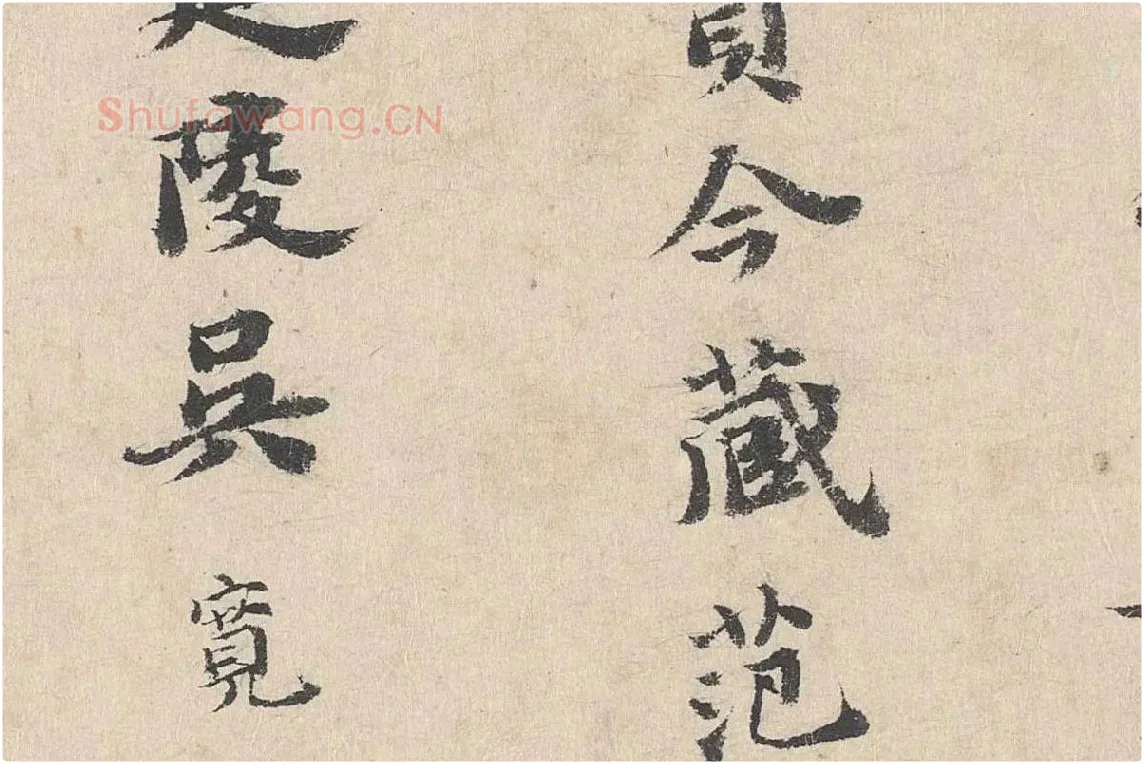 今藏范
陵吳寬
Shufawang.CN